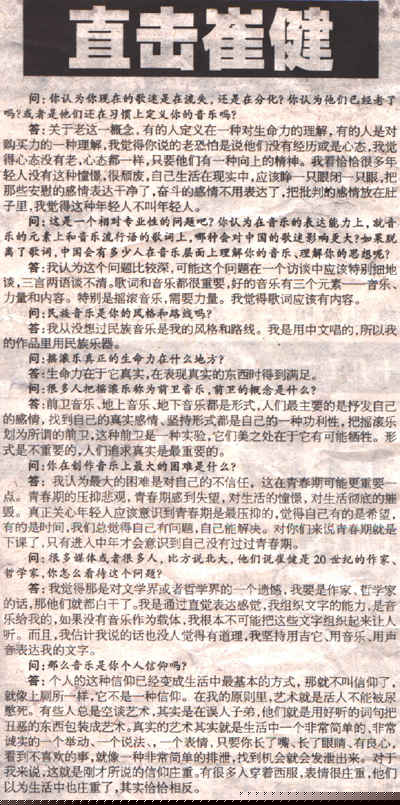 直击崔健
问:你认为你现在的歌迷是在流失,还是在分化?你认为他们已经老了
吗?或者是他们还在习惯上定义你的音乐吗?
答:关于老这一概念,有的人定义在一种对生命力的理解,有的人是对
购买力的一种理解,我觉得你说的老恐怕是说他们没有经历或是心态,我觉
得心态没有老,心态都一样,只要他们有一种向上的精神。我看恰恰很多年
轻人没有这种憧憬,很颓废,自己生活在现实中,应该睁一只眼闭一只眼,把
那些安慰的感情表达干净了,奋斗的感情不用表达了,把批判的感情放在肚
子里,我觉得这种年轻人不叫年轻人。
问:这是一个相对专业性的问题吧?你认为在音乐的表达能力上,就音
乐的元素上和音乐流行语的歌词上,哪种会对中国的歌迷影响更大?如果脱
离了歌词,中国会有多少人在音乐层面上理解你的音乐、理解你的思想呢?
答:我认为这个问题比较深,可能这个问题在一个访谈中应该特别细地
谈,三言两语谈不清。歌词和音乐都很重要,好的音乐有三个元素——音乐、
力量和内容。特别是摇滚音乐,需要力量。我觉得歌词应该有内容。
问:民族音乐是你的风格和路线吗?
答:我从没想过民族音乐是我的风格和路线。我是用中文唱的,所以我
的作品里用民族乐器。
问:摇滚乐真正的生命力在什么地方?
答:生命力在于它真实,在表现真实的东西时得到满足。
问:很多人把摇滚乐称为前卫音乐,前卫的概念是什么?
答:前卫音乐、地上音乐、地下音乐都是形式,人们最主要的是抒发自己
的感情,找到自己的真实感情、坚持形式都是自己的一种功利性,把摇滚乐
划为所谓的前卫,这种前卫是一种实验,它们美之处在于它有可能牺牲。形
式是不重要的,人们追求真实是最重要的。
问:你在创作音乐上最大的困难是什么?
答: 我认为最大的困难是对自己的不信任,这在青春期可能更重要一
点。青春期的压抑悲观,青春期感到失望,对生活的憧憬,对生活彻底的摧
毁。真正关心年轻人应该意识到青春期是最压抑的,觉得自己有的是希望,
有的是时间,我们总觉得自己有问题,自己能解决。对你们来说青春期就是
下课了,只有进入中年才会意识到自己没有过过青春期。
问:很多媒体或者很多人,比方说北大,他们说崔健是20世纪的作家、
哲学家,你怎么看待这个问题?
答:我觉得那是对文学界或者哲学界的一个遗憾,我要是作家、哲学家
的话,那他们就都白干了。我是通过直觉表达感觉,我组织文字的能力,是音
乐给我的,如果没有音乐作为载体,我根本不可能把这些文字组织起来让人
听。而且,我估计我说的话也没人觉得有道理,我坚持用吉它、用音乐、用声
音表达我的文字。
问:那么音乐是你个人信仰吗?
答: 个人的这种信仰已经变成生活中最基本的方式,那就不叫信仰了,
就像上厕所一样,它不是一种信仰。在我的原则里,艺术就是活人不能被尿
憋死。有些人总是空谈艺术,其实是在误人子弟,他们就是用好听的词句把
丑恶的东西包装成艺术。真实的艺术其实就是生活中一个非常简单的、非常
诚实的一个举动、一个说法、一个表情,只要你长了嘴、长了眼睛、有良心,
看到不喜欢的事,就像一种非常简单的排泄,找到机会就会发泄出来。对于
我来说,这就是刚才所说的信仰庄重。有很多人穿着西服,表情很庄重,他们
以为生活中也庄重了,其实恰恰相反。